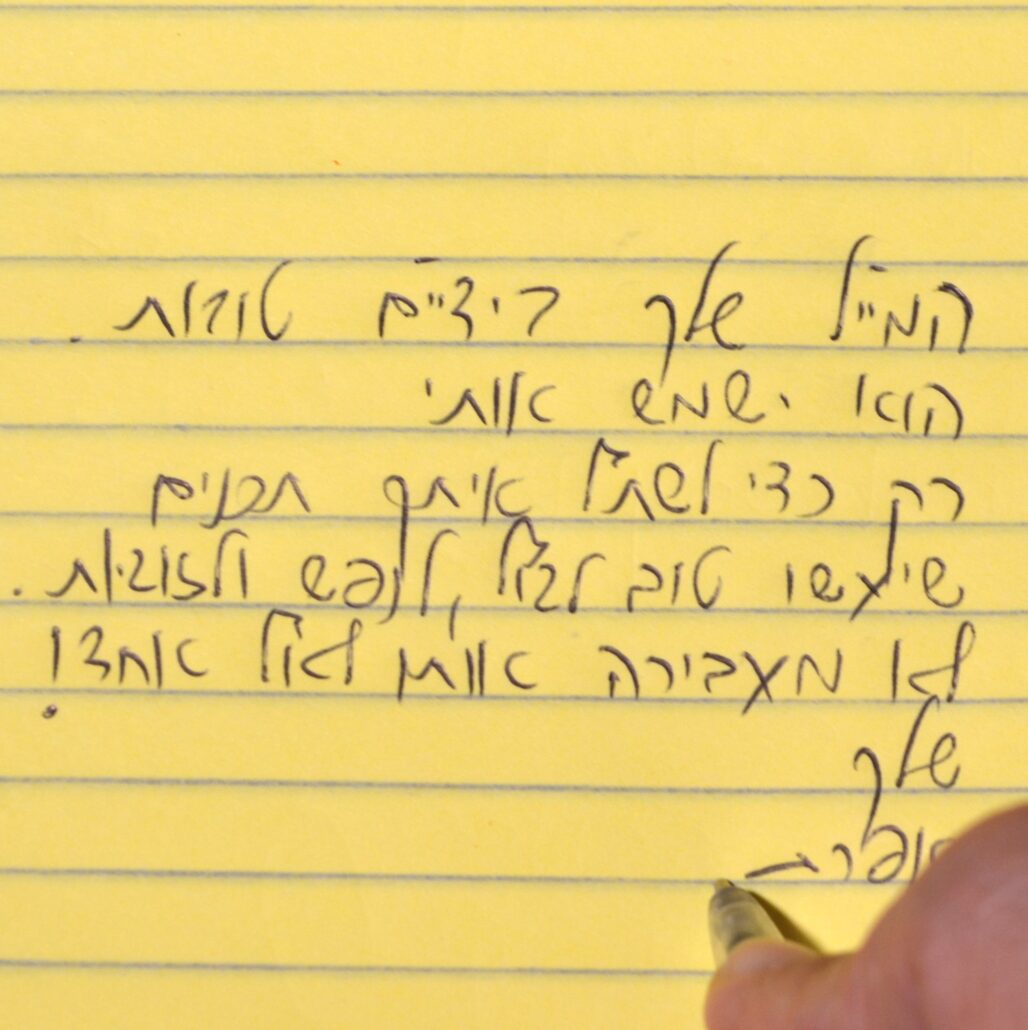 המייל שלך בידיים טובות.
הוא ישמש אותי
רק כדי לשתף איתך תכנים
שיעשו טוב לגוף, לנפש ולזוגיות.
לא מעבירה אותו לאף אחד!
שלך